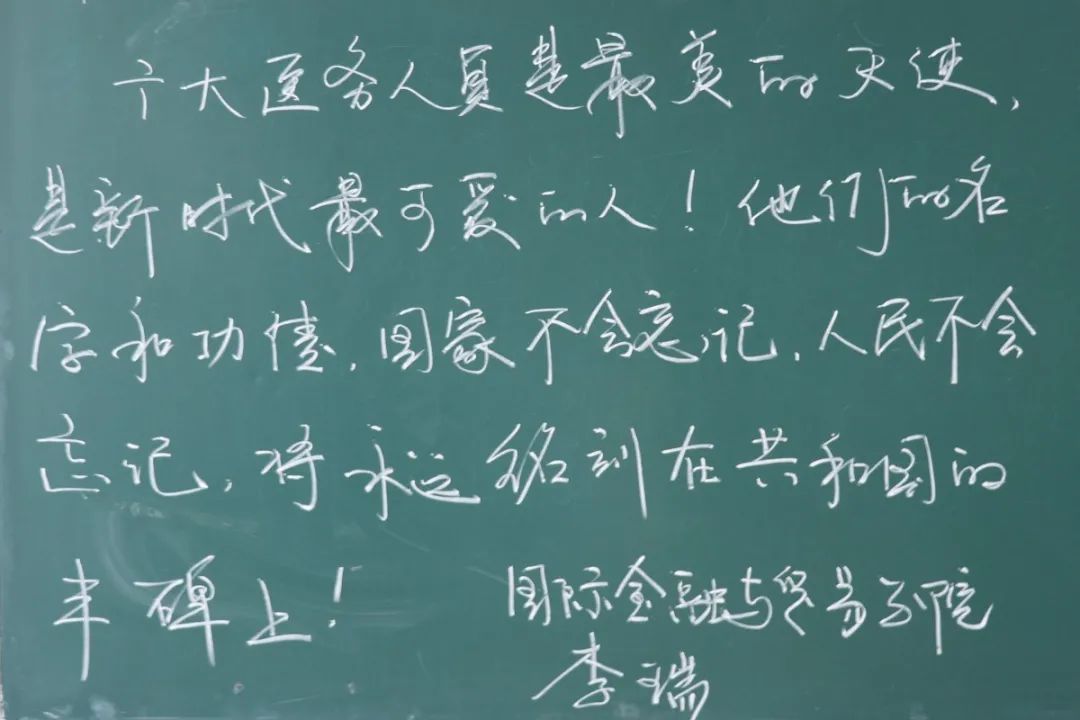 广大医务人员是最美的天使,
是新时代最可爱的人!他们的名
字和功绩,国家不会忘记,人民不会
忘记,将永远铭刻在共和国的
丰碑上!
国际金融与贸易学院
李瑞